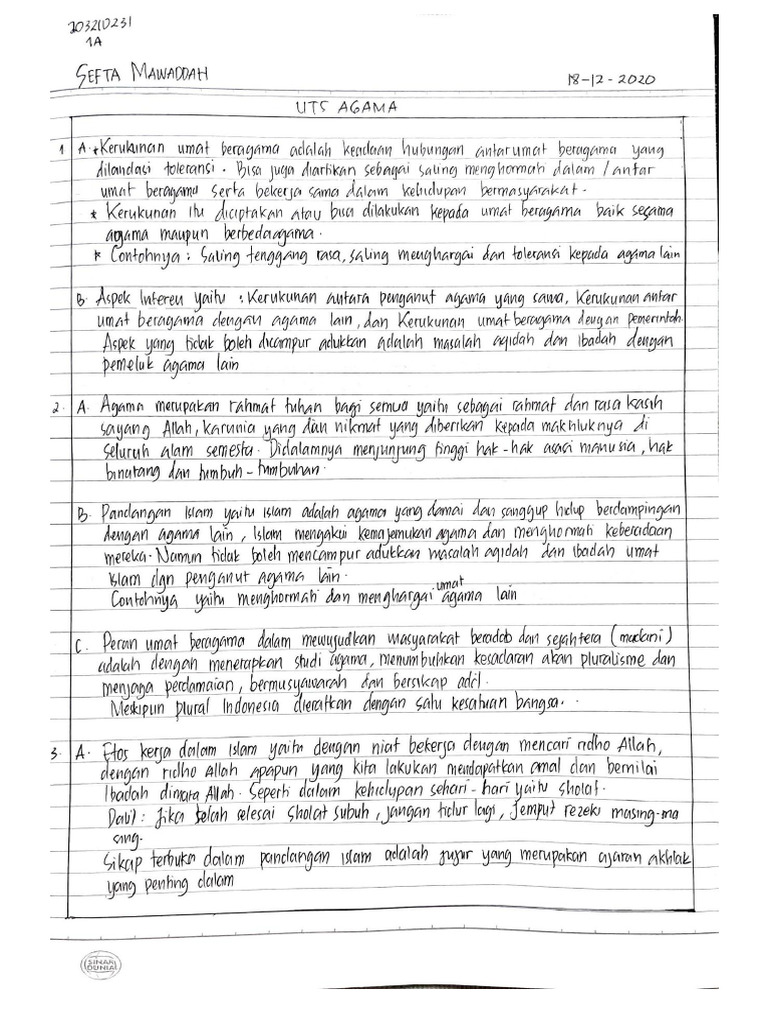 203210231
1A
SEFTA MAWADDAH
18-12-2020
UTS AGAMA
1 A. * Kerukunan umat beragama adalah keadaan hubungan antar umat beragama yang
dilandasi toleransi. Bisa juga diartikan sebagai saling menghormati dalam / antar
umat beragama serta bekerja sama dalam kehidupan bermasyarakat.
* Kerukunan itu diciptakan atau bisa dilakukan kepada umat beragama baik sesama
agama maupun berbeda agama.
* Contohnya : Saling tenggang rasa, saling menghargai dan toleransi kepada agama lain
B. Aspek Interen yaitu : Kerukunan antara penganut agama yang sama, Kerukunan antar
umat beragama dengan agama lain, dan Kerukunan umat beragama dengan pemerintah.
Aspek yang tidak boleh dicampur adukkan adalah masalah aqidah dan ibadah dengan
pemeluk agama lain
2. A. Agama merupakan rahmat tuhan bagi semua yaitu sebagai rahmat dan rasa kasih
sayang Allah, karunia yang dan nikmat yang diberikan kepada makhluknya di
seluruh alam semesta. Didalamnya menjunjung tinggi hak-hak asasi manusia, hak
binatang dan tumbuh-tumbuhan.
B. Pandangan Islam yaitu islam adalah agama yang damai dan sanggup hidup berdampingan
dengan agama lain, Islam mengakui kemajemukan agama dan menghormati keberadaan
mereka. Namun tidak boleh mencampur adukkan masalah aqidah dan ibadah umat
Islam dgn penganut agama lain.
Contohnya yaitu menghormati dan menghargai umat agama lain
C. Peran umat beragama dalam mewujudkan masyarakat beradab dan sejahtera (madani)
adalah dengan menerapkan studi agama, menumbuhkan kesadaran akan pluralisme dan
menjaga perdamaian, bermusyawarah dan bersikap adil.
Meskipun plural Indonesia dieratkan dengan satu kesatuan bangsa.
3. A. Etos kerja dalam Islam yaitu dengan niat bekerja dengan mencari ridho Allah,
dengan ridho Allah apapun yang kita lakukan mendapatkan amal dan bernilai
Ibadah dimata Allah. Seperti dalam kehidupan sehari-hari yaitu sholat.
Dalil : Jika telah selesai sholat subuh, jangan tidur lagi, jemput rezeki masing-ma
sing.
Sikap terbuka dalam pandangan islam adalah jujur yang merupakan ajaran akhlak
yang penting dalam
SINAR
DUNIA